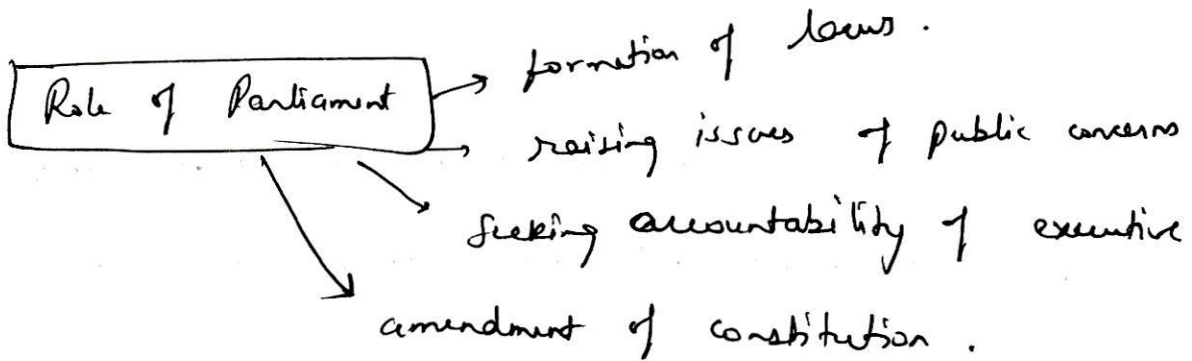 Role of Parliament
formation of laws.
raising issues of public concerns
seeking accountability of executive
amendment of constitution.